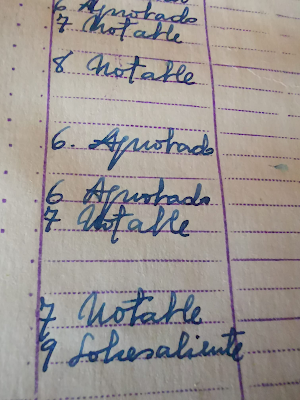 6 Aprobado
7 Notable
8 Notable
6. Aprobado
6 Aprobado
7 Notable
7 Notable
9 Sobresaliente